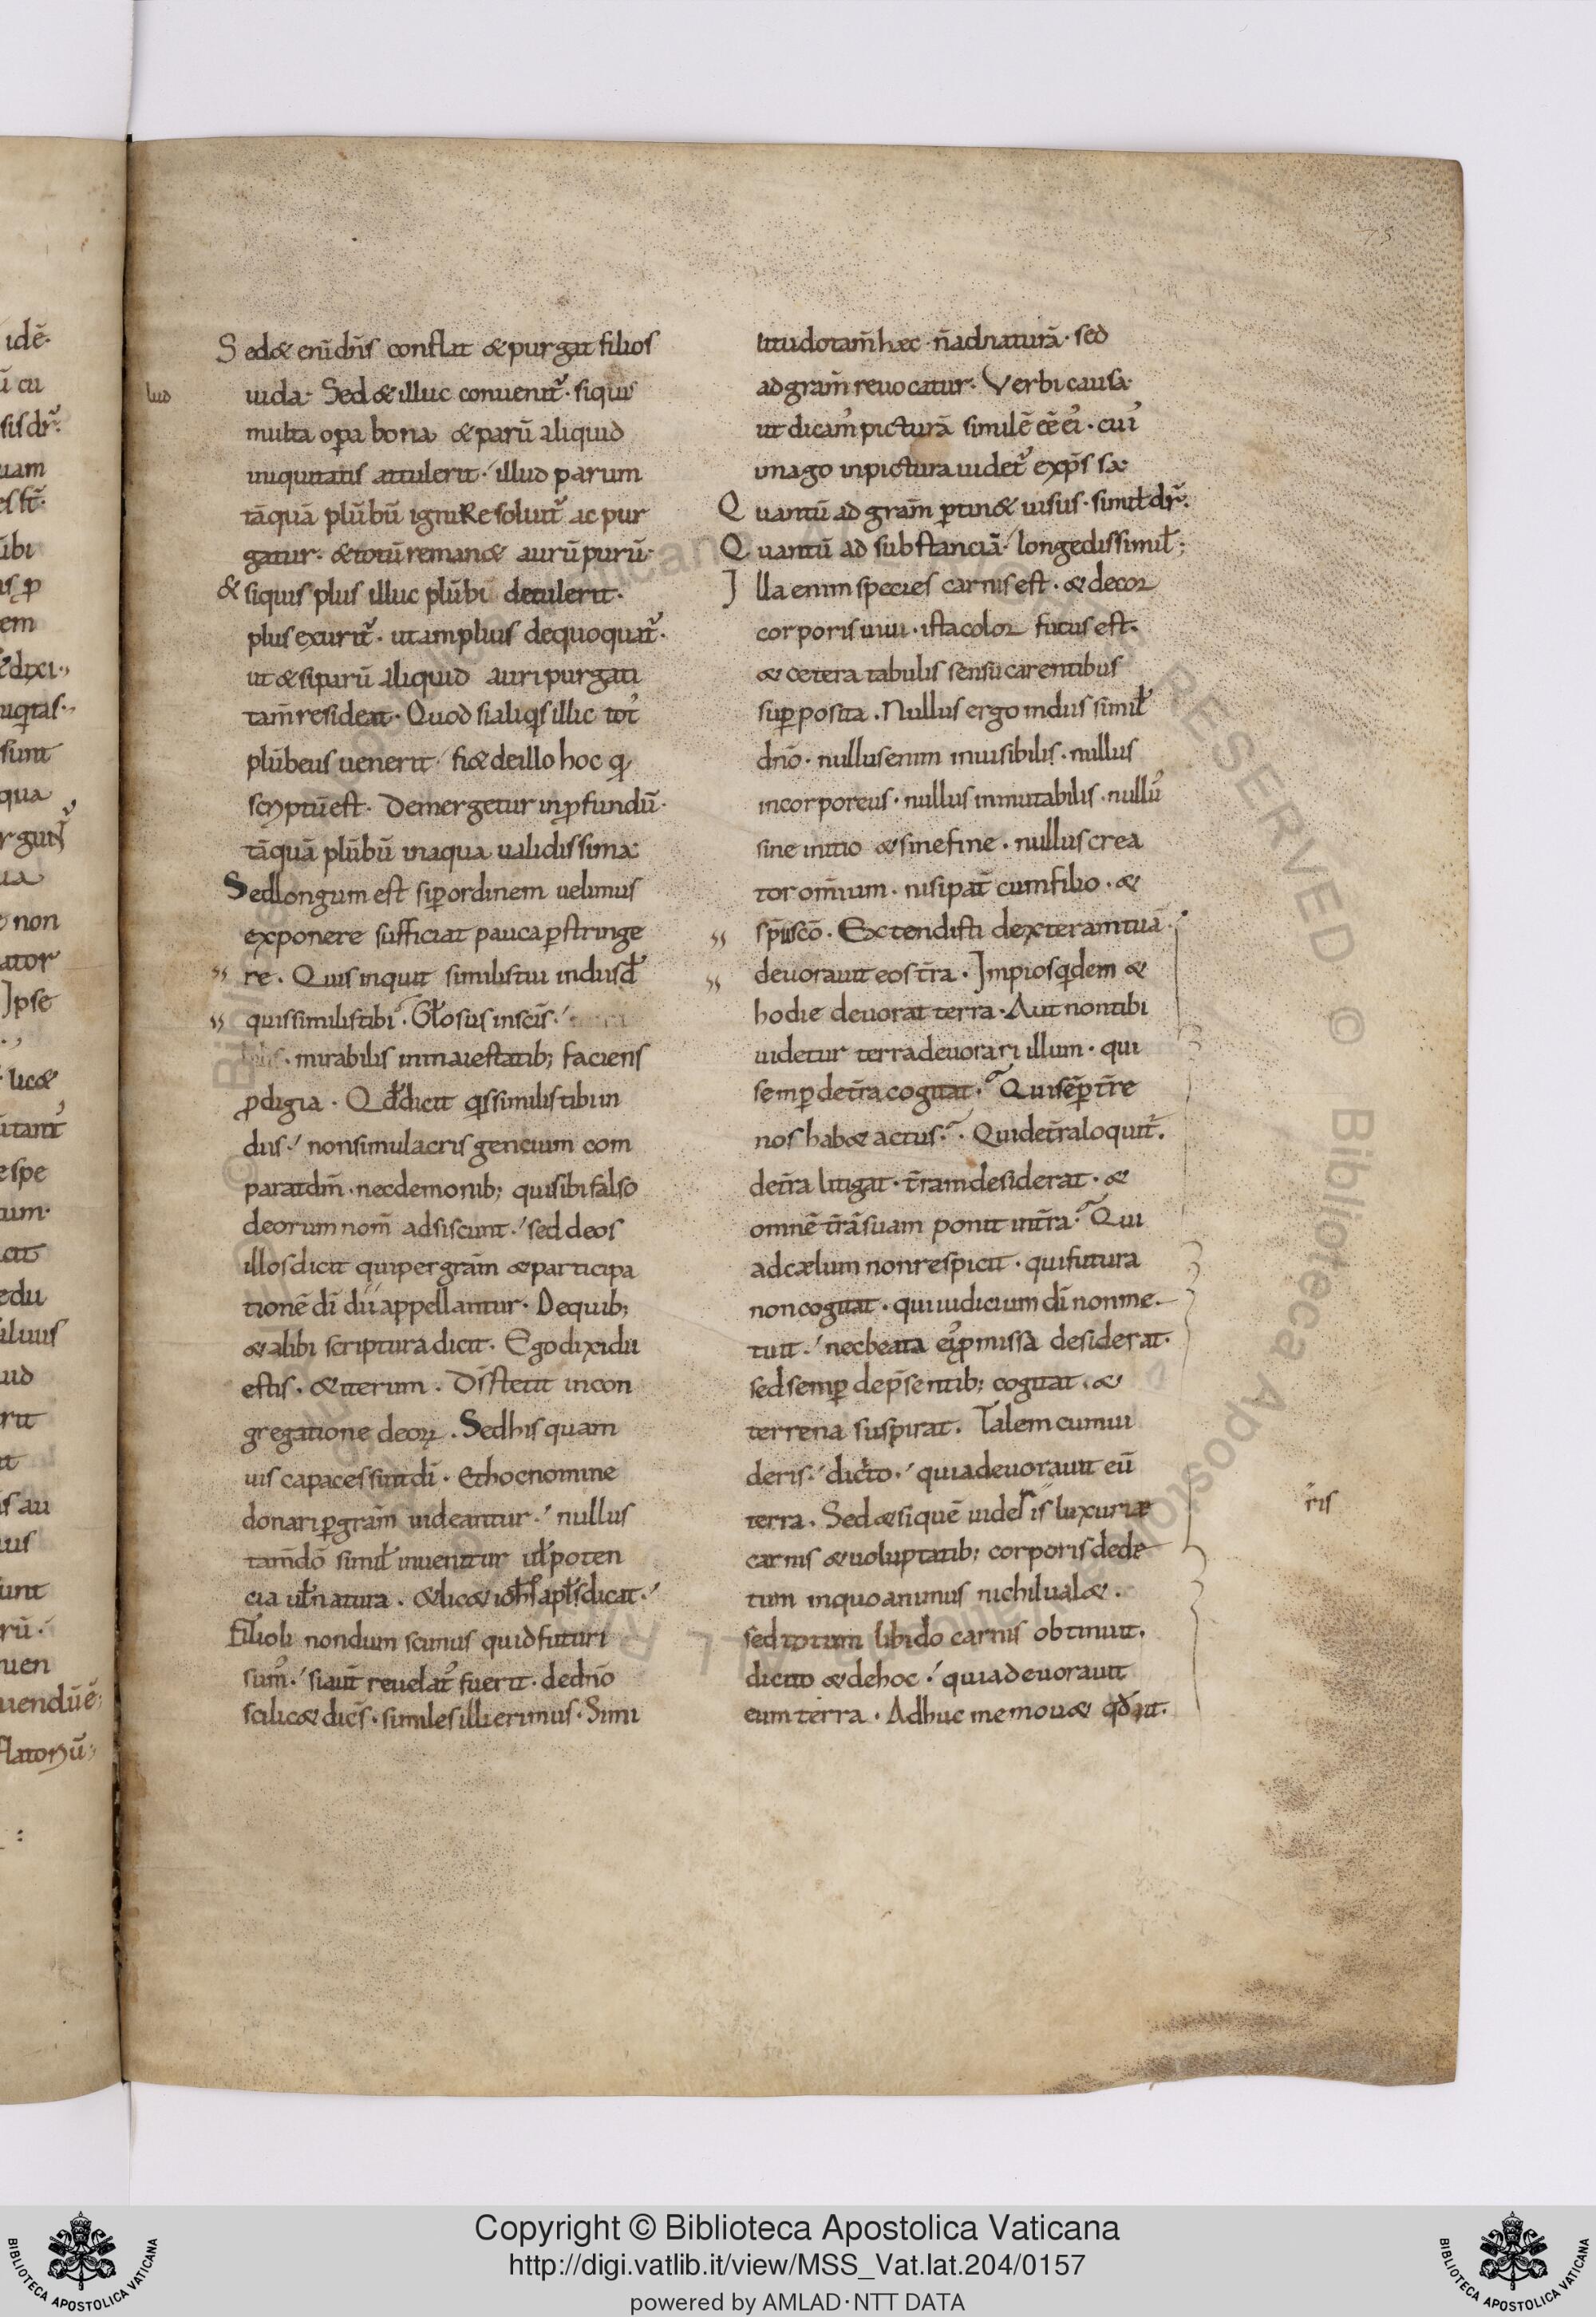 idē.
ū cu
sisdr̃.
uam
ūbi
em
dixi.
sunt
qua
ua
non
ator
Ipse
lic&
spe
cit
edu
ud
rit
is au
uis
unt
rū.
uen
uendūē
flatoꝝū
lud
Sed& eni dñs conflat & purgat filios
iuda. Sed & illuc conuenit᷑. siquis
multa oꝑa bona & parū aliquid
iniquitatis attulerit. illud parum
tāquā plūbū igniResoluit᷑ ac pur
gatur. & totū reman& aurū purū.
& siquis plus illuc plūbi detulerit.
plus exurit᷑. ut amplius dequoquat᷑.
ut & si parū aliquid auri purgati
tam̃ resideat. Quod sialiqs illic tot᷒
plūbeus uenerit fi& deillo hoc q
scriptū est. Demergetur inꝓfundū.
tāquā plūbū inaqua ualidissima.
Sedlongum est siꝑordinem uelimus
exponere sufficiat pauca ꝑstringe
re. Quis inquit similistibi indiisdn̄e
quissimilistibi. Gło sus inscīs.
mirabilis inmaiestatib; faciens
ꝓdigia. Qđ dicit qssimilistibi in
diis. non simulacris gencium com
parat dm̄. necdemonib; quisibi falso
deorum nom̄ adsiscunt. sed deos
illos dicit quiper gram̄ & participa
tionē dī dii appellantur. De quib;
& alibi scriptura dicit. Ego dixi dii
estis. & iterum. D̄s stetit in con
gregatione deoꝝ. Sed his quam
uis capaces sint dī. & hoc nomine
donari ꝑ gram̄ uideantur. nullus
tam̄ dō simił inuenitur uł poten
cia uł natura. & lic& ioh̄s apłs dicat.
Filioli nondum scimus quid futuri
sum᷒. si aut̄ reuelat᷒ fuerit. de dn̄o
scilic& dicēs. similes illi erimus. Simi
litudo tam̄ h&c n̄ ad naturā. sed
ad gram̄ reuocatur. Verbi causa.
ut dicam᷒ picturā similē ēē ei᷒. cui᷒
imago in pictura uidet᷑ exp̄ssa.
Quantū ad gram̄ ꝑtin& uisus. simił dr̃.
Quantū ad substanciā. longe dissimił;
Illa enim species carnis est. & decor
corporis uiui. ista color fucus est.
& cetera tabulis sensu carentibus
suꝑposita. Nullus ergo in diis simił
dn̄o. nullus enim inuisibilis. nullus
incorporeus. nullus inmutabilis. null᷒
sine initio & sine fine. nullus crea
tor om̄ium. nisi pat̄ cum filio. &
sp̄u scō. Extendisti dexteram tuā.
deuorauit eos tr̄a. Impios qdem &
hodie deuorat terra. Aut non tibi
uidetur terra deuorari illum. qui
semꝑ de tr̄a cogitat. Qui sēꝑ tr̄re
nos hab& actus. Qui de tr̄a loquit᷑.
de tr̄a litigat. tr̄am desiderat. &
omnē tr̄ā suam ponit in tr̄a. Qui
ad cælum non respicit. qui futura
non cogitat. qui iudicium dī non me
tuit. nec beata ei᷒ ꝓmissa desiderat.
sed semꝑ de p̄sentib; cogitat. &
terrena suspirat. Talem cum ui
deris. dic̄to. quia deuorauit eū
terra. Sed & si quē uides is luxuriæ
carnis & uoluptatib; corporis dedi
tum in quo animus nichil ual&.
sed totum libido carnis obtinuit.
dicito & de hoc. quia deuorauit
eum terra. Adhuc me mou& qđ ait.
ris
Copyright © Biblioteca Apostolica Vaticana
http://digi.vatlib.it/view/MSS_Vat.lat.204/0157
powered by AMLAD·NTT DATA